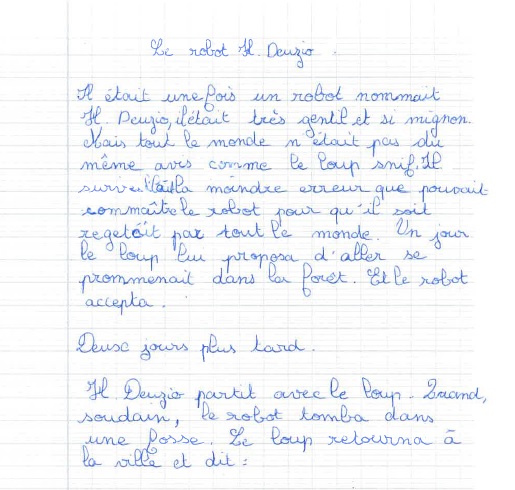 Le robot M. Deuzio.
Il était une fois un robot nommait
M. Deuzio, il était très gentil et si mignon.
Mais tout le monde n'était pas du
même avis comme le loup snif. Il
surveillait la moindre erreur que pouvait
commaître le robot pour qu'il soit
regetait par tout le monde. Un jour
le loup lui proposa d'aller se
prommenait dans la forêt. Et le robot
accepta.
Deux jours plus tard.
M. Deuzio partit avec le loup. Quand,
soudain, le robot tomba dans
une fosse. Le loup retourna à
la ville et dit :